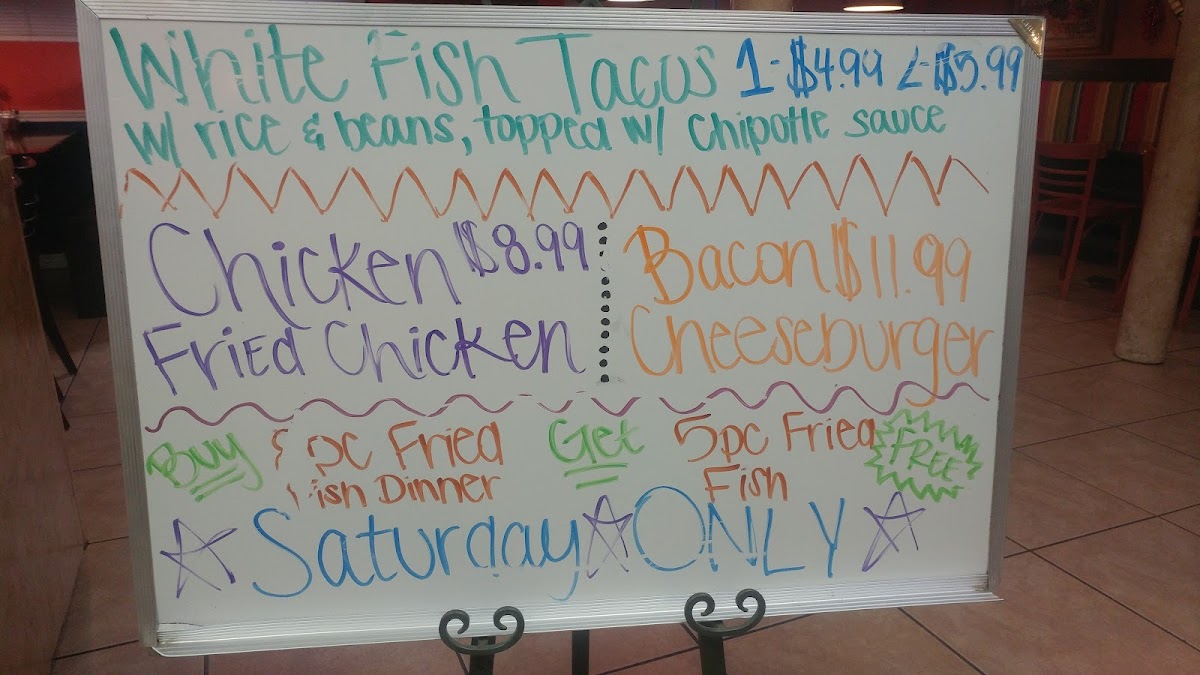 White Fish Tacos 1-$4.99 2-$5.99
w/ rice & beans, topped w/ chipotle sauce
Chicken $8.99
Fried Chicken
Bacon $11.99
Cheeseburger
Buy pc Fried Get 5pc Fried FREE
Dinner Fish
Saturday ONLY